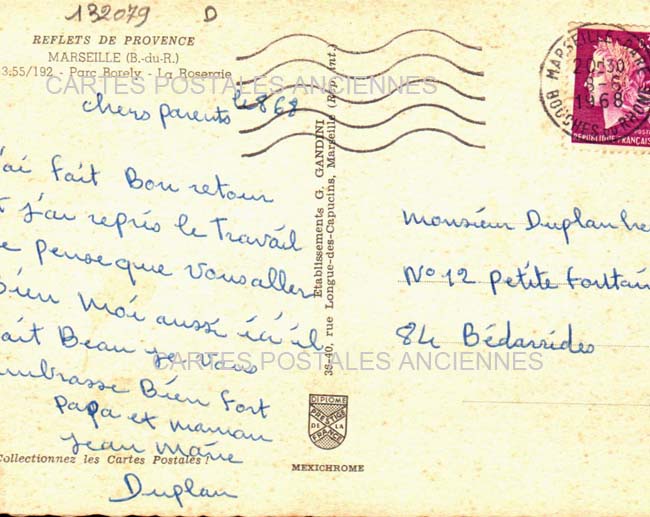 132079 D
REFLETS DE PROVENCE
MARSEILLE (B.-du-R.)
3.55/192 - Parc Borely - La Roseraie
CARTES POSTALES ANCIENNES
chers parents
'ai fait Bon retour
t j'ai repris le Travail
e pense que vous allers
Bien moi aussi ici il
ait Beau je vous
mbrasse Bien fort
Papa et maman
Jean Marie
Duplan
Collectionnez les Cartes Postales !
Etablissements G. GANDINI
38-40, rue Longue-des-Capucins, Marseille (Rep. int.)
DIPLOME
PRESTIGE
DE LA
FRANCE
MEXICHROME
MARSEILLE
20H30
1968
BOUCHES DU RHONE
REPUBLIQUE FRANÇAIS
monsieur Duplan
N° 12 petite Fontain
84 Bédarrides
CARTES POSTALES ANCIENNES